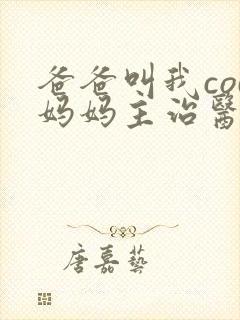 爸爸叫我co
妈妈主治醫
唐嘉藝